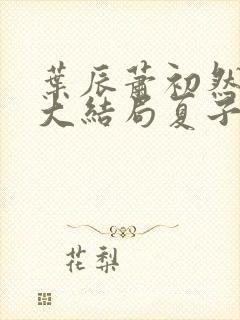 葉辰蕭初然
大結局夏子
花梨